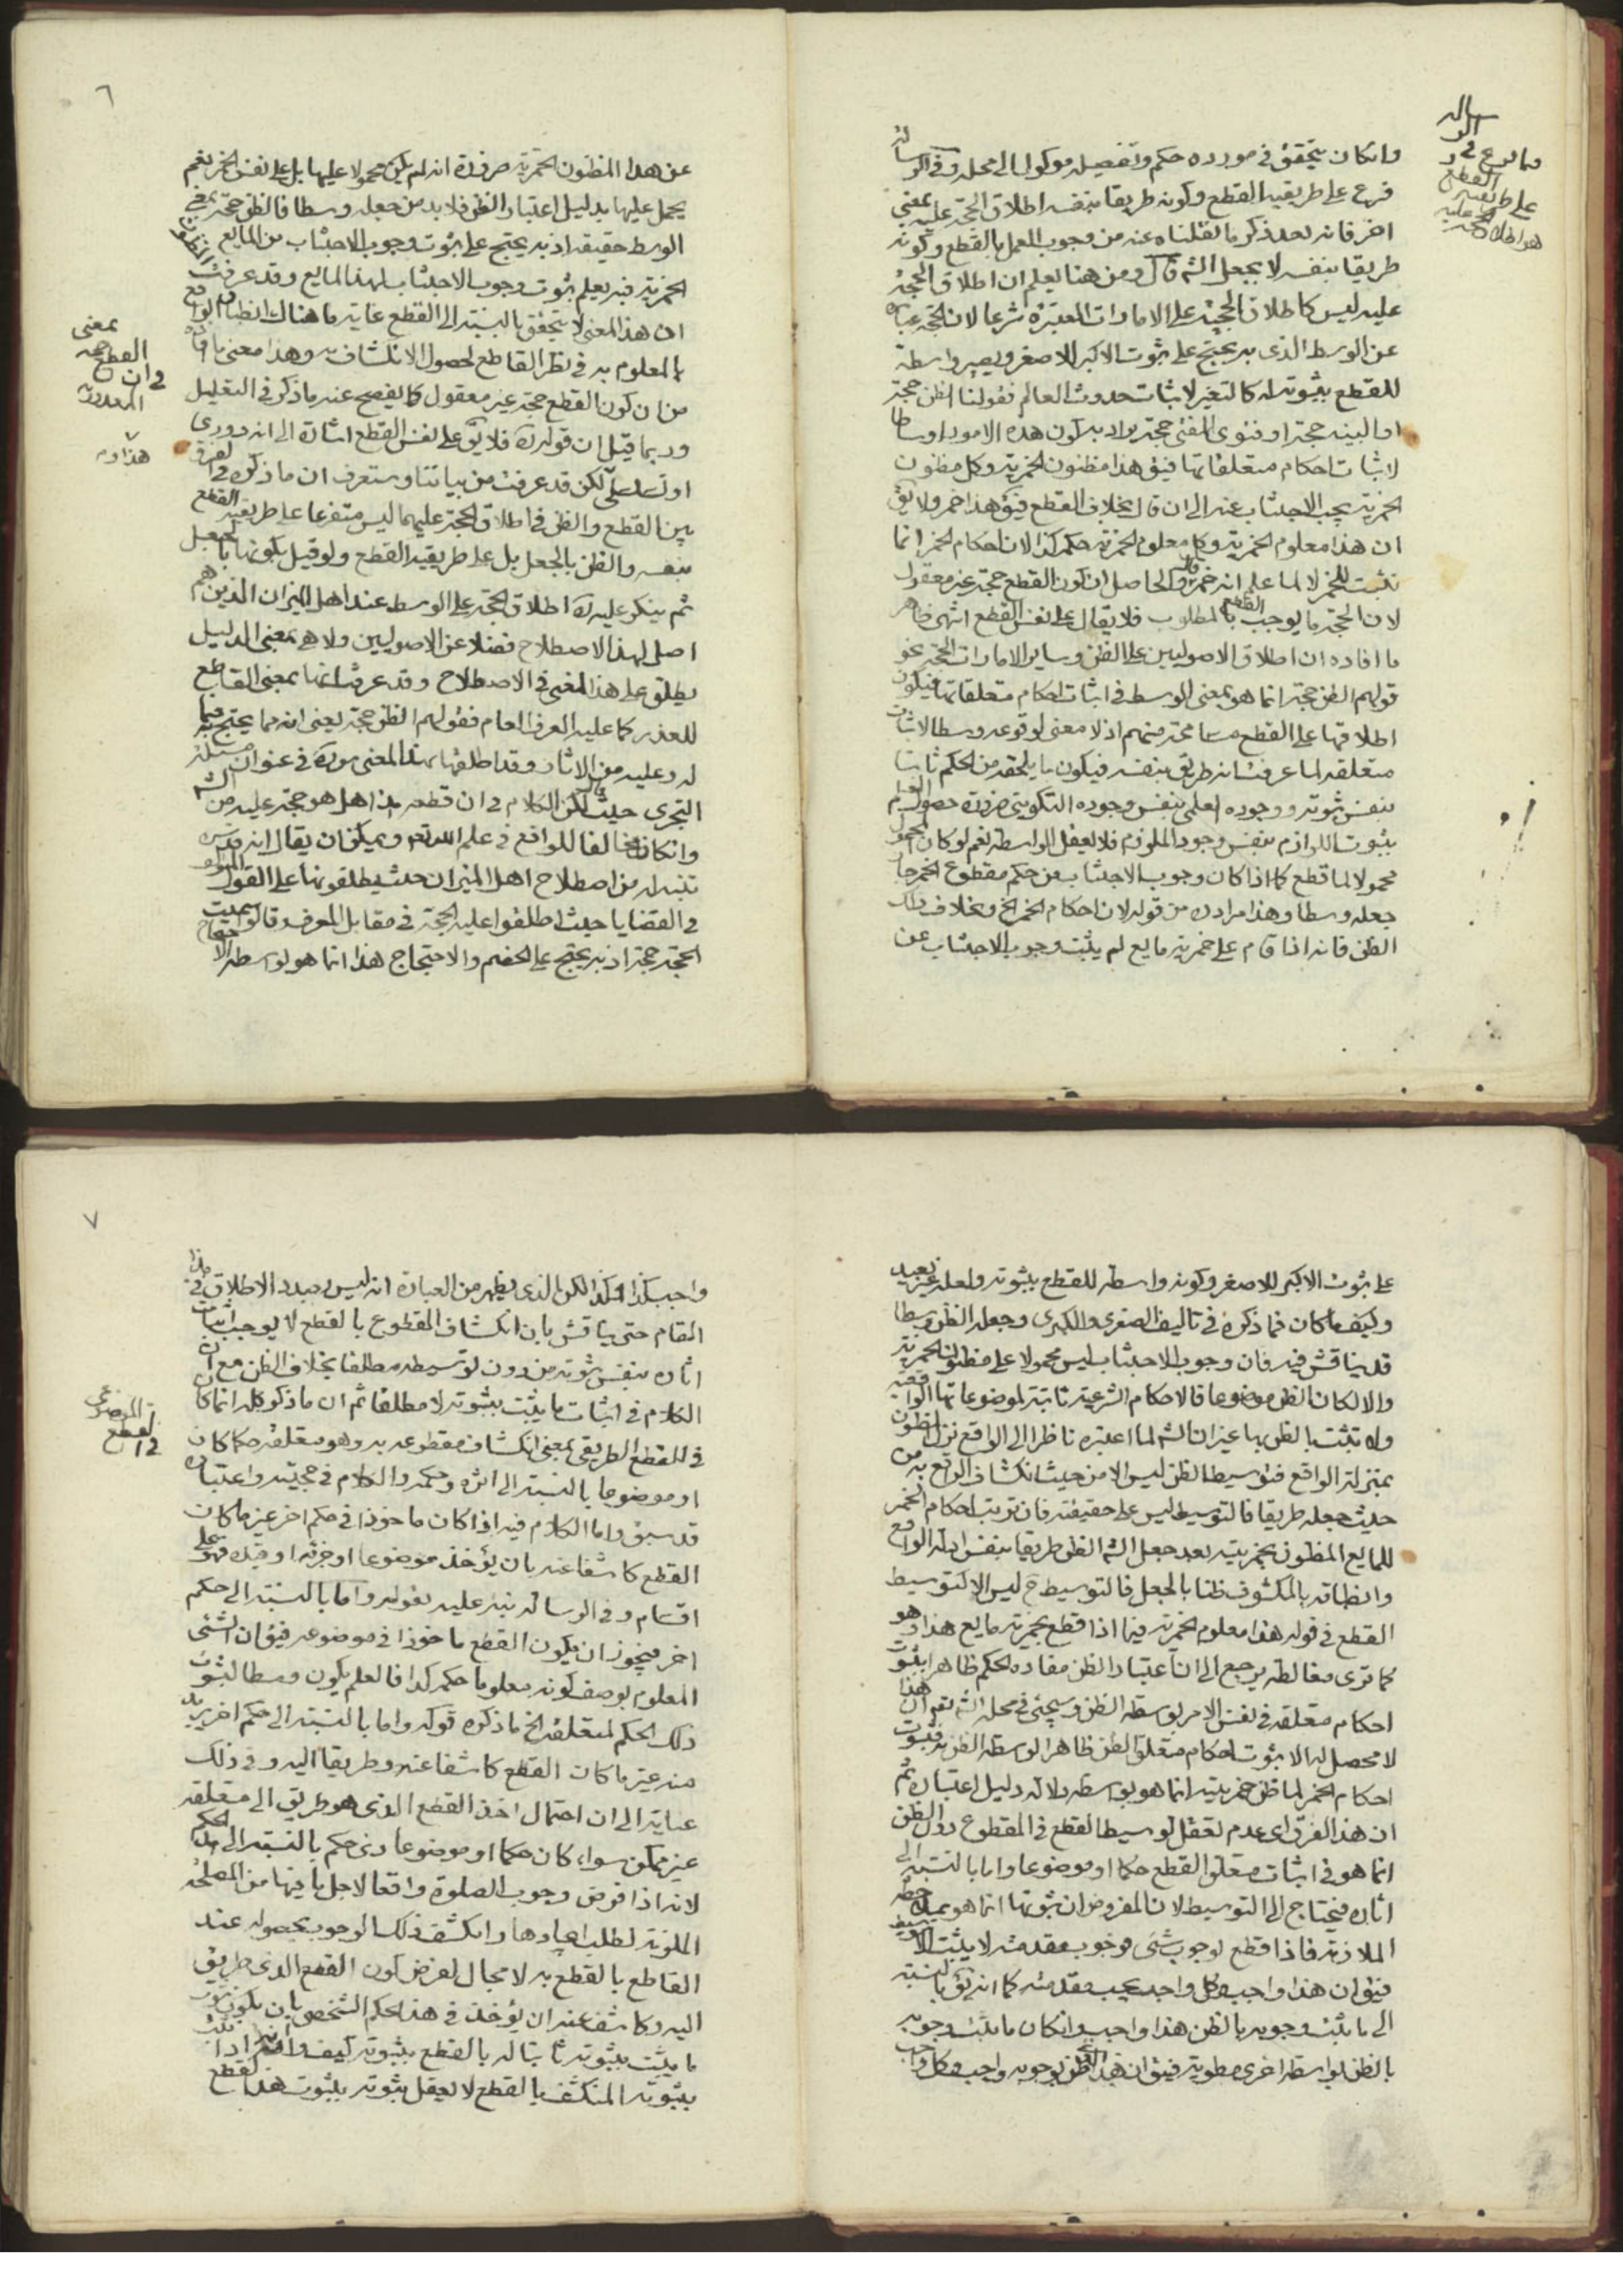 وان كان يتحقق في مورده حكم وتفصيله موكول الى محله وفي الرسالة
فرع على طريقيه القطع وكونه طريقا بنفسه اطلاق الحجة عليه بمعنى
اخر فانه بعد ذكر ما نقلناه عنه من وجوب العمل بالقطع وكونه
طريقا بنفسه لا بجعل الشه قال ومن هنا يعلم ان اطلاق الحجة
عليه ليس كاطلاق الحجة على الامارات المعتبرة شرعا لان الحجة عبارة
عن الوسط الذى به يحتج على ثبوت الاكبر للاصغر ويصير واسطة
للقطع بثبوته له كالتغير لاثبات حدوث العالم فقولنا الظن حجة
او البينه حجة او فتوى المفتى حجة يراد به كون هذه الامور اوساطا
لاثبات احكام متعلقاتها فيق هذا مظنون الخمرية وكل مظنون
الخمرية يجب الاجتناب عنه الى ان قال بخلاف القطع فيق هذا خمر ولا يق
ان هذا معلوم الخمرية وكل معلوم الخمرية حكمه كذا لان احكام الخمر انما
تثبت للخمر لا لما علم انه خمر والحاصل ان كون القطع حجة غير معقول
لان الحجة ما يوجب القطع بالمطلوب فلا يقال على نفس القطع انتهى ظاهر
ما افاده ان اطلاق الاصوليين على الظن وساير الامارات الحجة نحو
قولهم الظن حجة انما هو بمعنى الوسط في اثبات احكام متعلقاتها فيكون
اطلاقها على القطع مسامحة منهم اذ لا معنى لوقوعه وسطا لاثبات
متعلقه لما عرفت انه طريق بنفسه فيكون ما يلحقه من الحكم ثابتا
بنفس ثبوته ووجوده العلمى بنفس وجوده التكوينى ضرورة حصول العلم
بثبوت اللوازم بنفس وجود الملزوم فلا يعقل الواسطه نعم لو كان المحمول
محمولا لما قطع كما اذا كان وجوب الاجتناب من حكم مقطوع الخمر جاز
جعله وسطا وهذا مراده من قوله لان احكام الخمر الخ وبخلاف ذلك
الظن فانه اذا قام على خمرية مايع لم يثبت وجوب الاجتناب عن
القطع
على طريقيه
٦
عن هذا المظنون الخمرية ضرورة انه لم يكن محمولا عليها بل على نفس الخمر نعم
يحمل عليها بدليل اعتبار الظن فلا بد من جعله وسطا فالظن حجة بمعنى
الوسط حقيقه اذ به يحتج على ثبوت وجوب الاجتناب من المايع المظنون
الخمرية فبه يعلم ثبوت وجوب الاجتناب لهذا المايع وقد عرفت
ان هذا المعنى لا يتحقق بالنسبة الى القطع غاية ما هناك انطباق الواقع
بالمعلوم به في نظر القاطع لحصول الانكشاف به وهذا معنى ما افاده
من ان كون القطع حجة غير معقول كما يفصح عنه ما ذكره في التعليل
وربما قيل ان قوله ره فلا يق على نفس القطع اشارة الى انه دورى
او تسلسلى لكن قد عرفت من بياننا وستعرف ان ما ذكره في الفرق
بين القطع والظن في اطلاق الحجة عليهما ليس متفرعا على طريقيه القطع
بنفسه والظن بالجعل بل على طريقيه القطع ولو قيل بكونها بالجعل
ثم ينكر عليه ره اطلاق الحجة على الوسط عند اهل الميزان الذين هم
اصل لهذا الاصطلاح فضلا عن الاصوليين ولا هى بمعنى الدليل
يطلق على هذا المعنى في الاصطلاح وقد عرفت انها بمعنى القاطع
للعذر كما عليه العرف العام فقولهم الظن حجة يعنى انه مما يحتج به فيما
له وعليه من الاثار وقد اطلقها بهذا المعنى هو ره في عنوان مسئله
التجرى حيث قال لكن الكلام في ان قطعه هذا هل هو حجة عليه من الشه
وان كان مخالفا للواقع في علم الله تعه ويمكن ان يقال انه قدس سره
تنبه له من اصطلاح اهل الميزان حيث يطلقونها على القول المؤلف
في القضايا حيث اطلقوا عليه الحجة في مقابل المعرف وقالوا سميت
الحجة حجة اذ به يحتج على الخصم والاحتجاج هذا انما هو لوسطه الاحتجاج
بمعنى
القطع حجه
في ان
المعذريه
على ثبوت الاكبر للاصغر وكونه واسطه للقطع بثبوته ولعله غير بعيد
وكيف ما كان فما ذكره في تاليف الصغرى والكبرى وجعله الظن وسطا
قد يناقش فيه فان وجوب الاجتناب ليس محمولا على مظنون الخمرية
والا لكان الظن موضوعا فالاحكام الشرعية ثابتة لموضوعاتها الواقعية
ولا تثبت بالظن بها غير ان الشه لما اعتبره ناظرا الى الواقع نزل المظنون
بمنزلة الواقع فتوسيط الظن ليس الا من حيث انكشاف الواقع به من
حيث جعله طريقا فالتوسيط ليس على حقيقته فان ترتب احكام الخمر
للمايع المظنون بخمريته بعد جعل الشه الظن طريقا بنفس ارائه الواقع
وانطباقه بالمكشوف ظنا بالجعل فالتوسيط ح ليس الا كتوسيط
القطع في قوله هذا معلوم الخمرية فيما اذا قطع بخمرية مايع هذا وهو
كما ترى مغالطه يرجع الى ان اعتبار الظن مفاده الحكم ظاهرا بثبوت
احكام متعلقه في نفس الامر بوسطه الظن وسيجئ في محله انشه تعه ان هذا
لا محصل له الا ثبوت احكام متعلق الظن ظاهرا لوسطه الظن به فثبوت
احكام الخمر لما ظن خمريته انما هو بوسطه دلاله دليل اعتباره ثم
ان هذا الفرق اى عدم تعقل توسيط القطع في المقطوع دون الظن
انما هو في اثبات متعلق القطع حكما او موضوعا واما بالنسبه الى
اثاره فيحتاج الى التوسيط لان المفروض ان ثبوتها انما هو بملاحظه
الملازمة فاذا قطع بوجوب شئ فوجوب مقدمته لا يثبت الا بتوسيط
فيق ان هذا واجب وكل واجب يجب مقدمته كما انه يق بالنسبة
الى ما يثبت وجوبه بالظن هذا واجب وان كان ما يثبت وجوبه
بالظن بواسطه اخرى مطوية فيق ان هذا الذى ظن بوجوبه واجب وكل واجب
٧
واجب كذا هكذا لكن الذى يظهر من العبارة انه ليس بصدد الاطلاق في هذا
المقام حتى يناقش بان انكشاف المقطوع بالقطع لا يوجب اثبات
اثاره بنفس ثبوته من دون توسيطه مطلقا بخلاف الظن مع ان
الكلام في اثبات ما يثبت بثبوته لا مطلقا ثم ان ما ذكر كله انما كان
في القطع الطريقى بمعنى انكشاف مقطوعه به وهو متعلقه حكما كان
او موضوعا بالنسبة الى اثره وحكمه والكلام في حجيته واعتباره
قد سبق واما الكلام فيه اذا كان ماخوذا في حكم اخر غير ما كان
القطع كاشفا عنه بان يؤخذ موضوعا او جزئه او قيده فهو على
اقسام وفي الرسالة نبه عليه بقوله واما بالنسبة الى حكم
اخر فيجوز ان يكون القطع ماخوذا في موضوعه فيق ان الشئ
المعلوم بوصف كونه معلوما حكمه كذا فالعلم يكون وسطا لثبوت
ذلك الحكم لمتعلقه الخ ما ذكره قوله واما بالنسبة الى حكم اخر يريد
منه غير ما كان القطع كاشفا عنه وطريقا اليه وفي ذلك
عناية الى ان احتمال اخذ القطع الذى هو طريق الى متعلقه
غير ممكن سواء كان حكما او موضوعا ذى حكم بالنسبة الى هذا الحكم
لانه اذا فرض وجوب الصلوة واقعا لاجل ما فيها من المصلحة
الملزمة لطلب ايجادها وانكشف ذلك الوجوب بحصوله عند
القاطع بالقطع به لا مجال لفرض كون القطع الذى طريق
اليه وكاشف عنه ان يؤخذ في هذا الحكم الشخصى بان يكون ثبوت
ما يثبت بثبوته ثابتا له بالقطع بثبوته كيف وانه اذا ثبت
بثبوته المنكشف بالقطع لا يعقل ثبوته بثبوت هذا القطع
الموضوعى
في القطع